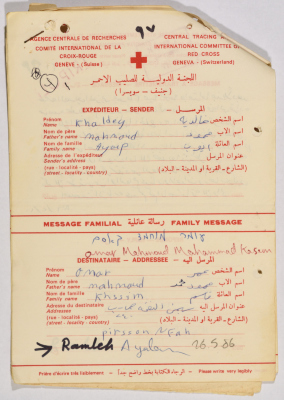 97
AGENCE CENTRALE DE RECHERCHES
COMITÉ INTERNATIONAL DE LA
CROIX-ROUGE
GENÈVE - (Suisse)
CENTRAL TRACING
INTERNATIONAL COMMITTEE
RED CROSS
GENEVA - (Switzerland)
اللجنة الدولية للصليب الاحمر
(جنيف - سويسرا)
EXPÉDITEUR - SENDER - المرسل
Prénom
Name
اسم الشخص
Nom de père
Father's name
mahmoud
اسم الاب
Nom de famille
Family name
Ayoip
اسم العائلة
Adresse de l'expéditeur
Sender's address
عنوان المرسل
(rue - localité - pays)
(street - locality - country)
(الشارع - القرية او المدينة - البلاد)
MESSAGE FAMILIAL رسالة عائلية FAMILY MESSAGE
omar Mahmoud Mohammad Kasem
DESTINATAIRE - ADDRESSEE - المرسل اليه
Prénom
Name
omar
عمر
اسم الشخص
Nom de père
Father's name
mahmoud
اسم الاب
Nom de famille
Family name
Khassim
قاسم
اسم العائلة
Adresse du destinataire
Addressee's
عنوان المرسل اليه
(rue - localité - pays)
(street - locality - country)
(الشارع - القرية او المدينة - البلاد)
→ Ramleh Ayalon 26.5.86
Prière d'écrire très lisiblement - الرجاء الكتابة بخط واضح جداً - Please write very legibly